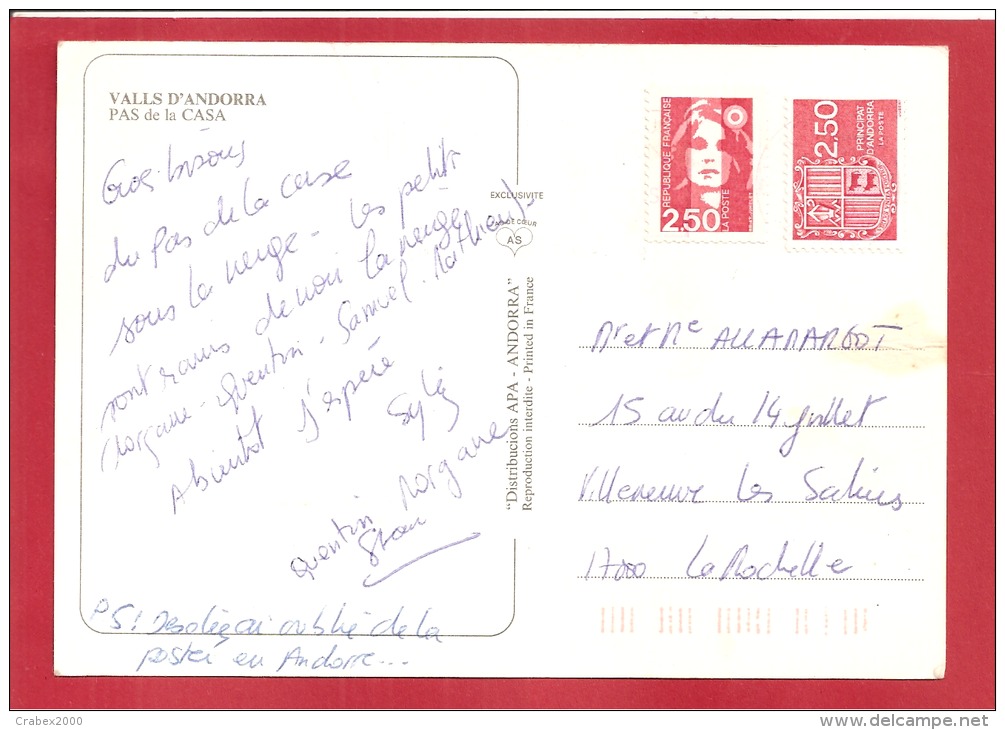 VALLS D'ANDORRA
PAS de la CASA
Gros bisous
du Pas de la case
sous la neige - les petits
sont ravis de voir la neige
Morgane - Quentin - Samuel - Mathieu
A bientot j'espère
Sylvie
Quentin Morgane
PS: Desolé j'ai oublié de la
poster en Andorre...
EXCLUSIVITE
AS DE CŒUR
AS
"Distribucions APA - ANDORRA"
Reproduction interdite - Printed in France
REPUBLIQUE FRANÇAISE
2,50
LA POSTE
2,50
PRINCIPAT
D'ANDORRA
LA POSTE
Mr et Me ALLAMARGOT
15 av du 14 juillet
Villeneuve les Salines
17000 La Rochelle
Crabex2000
www.delcampe.net